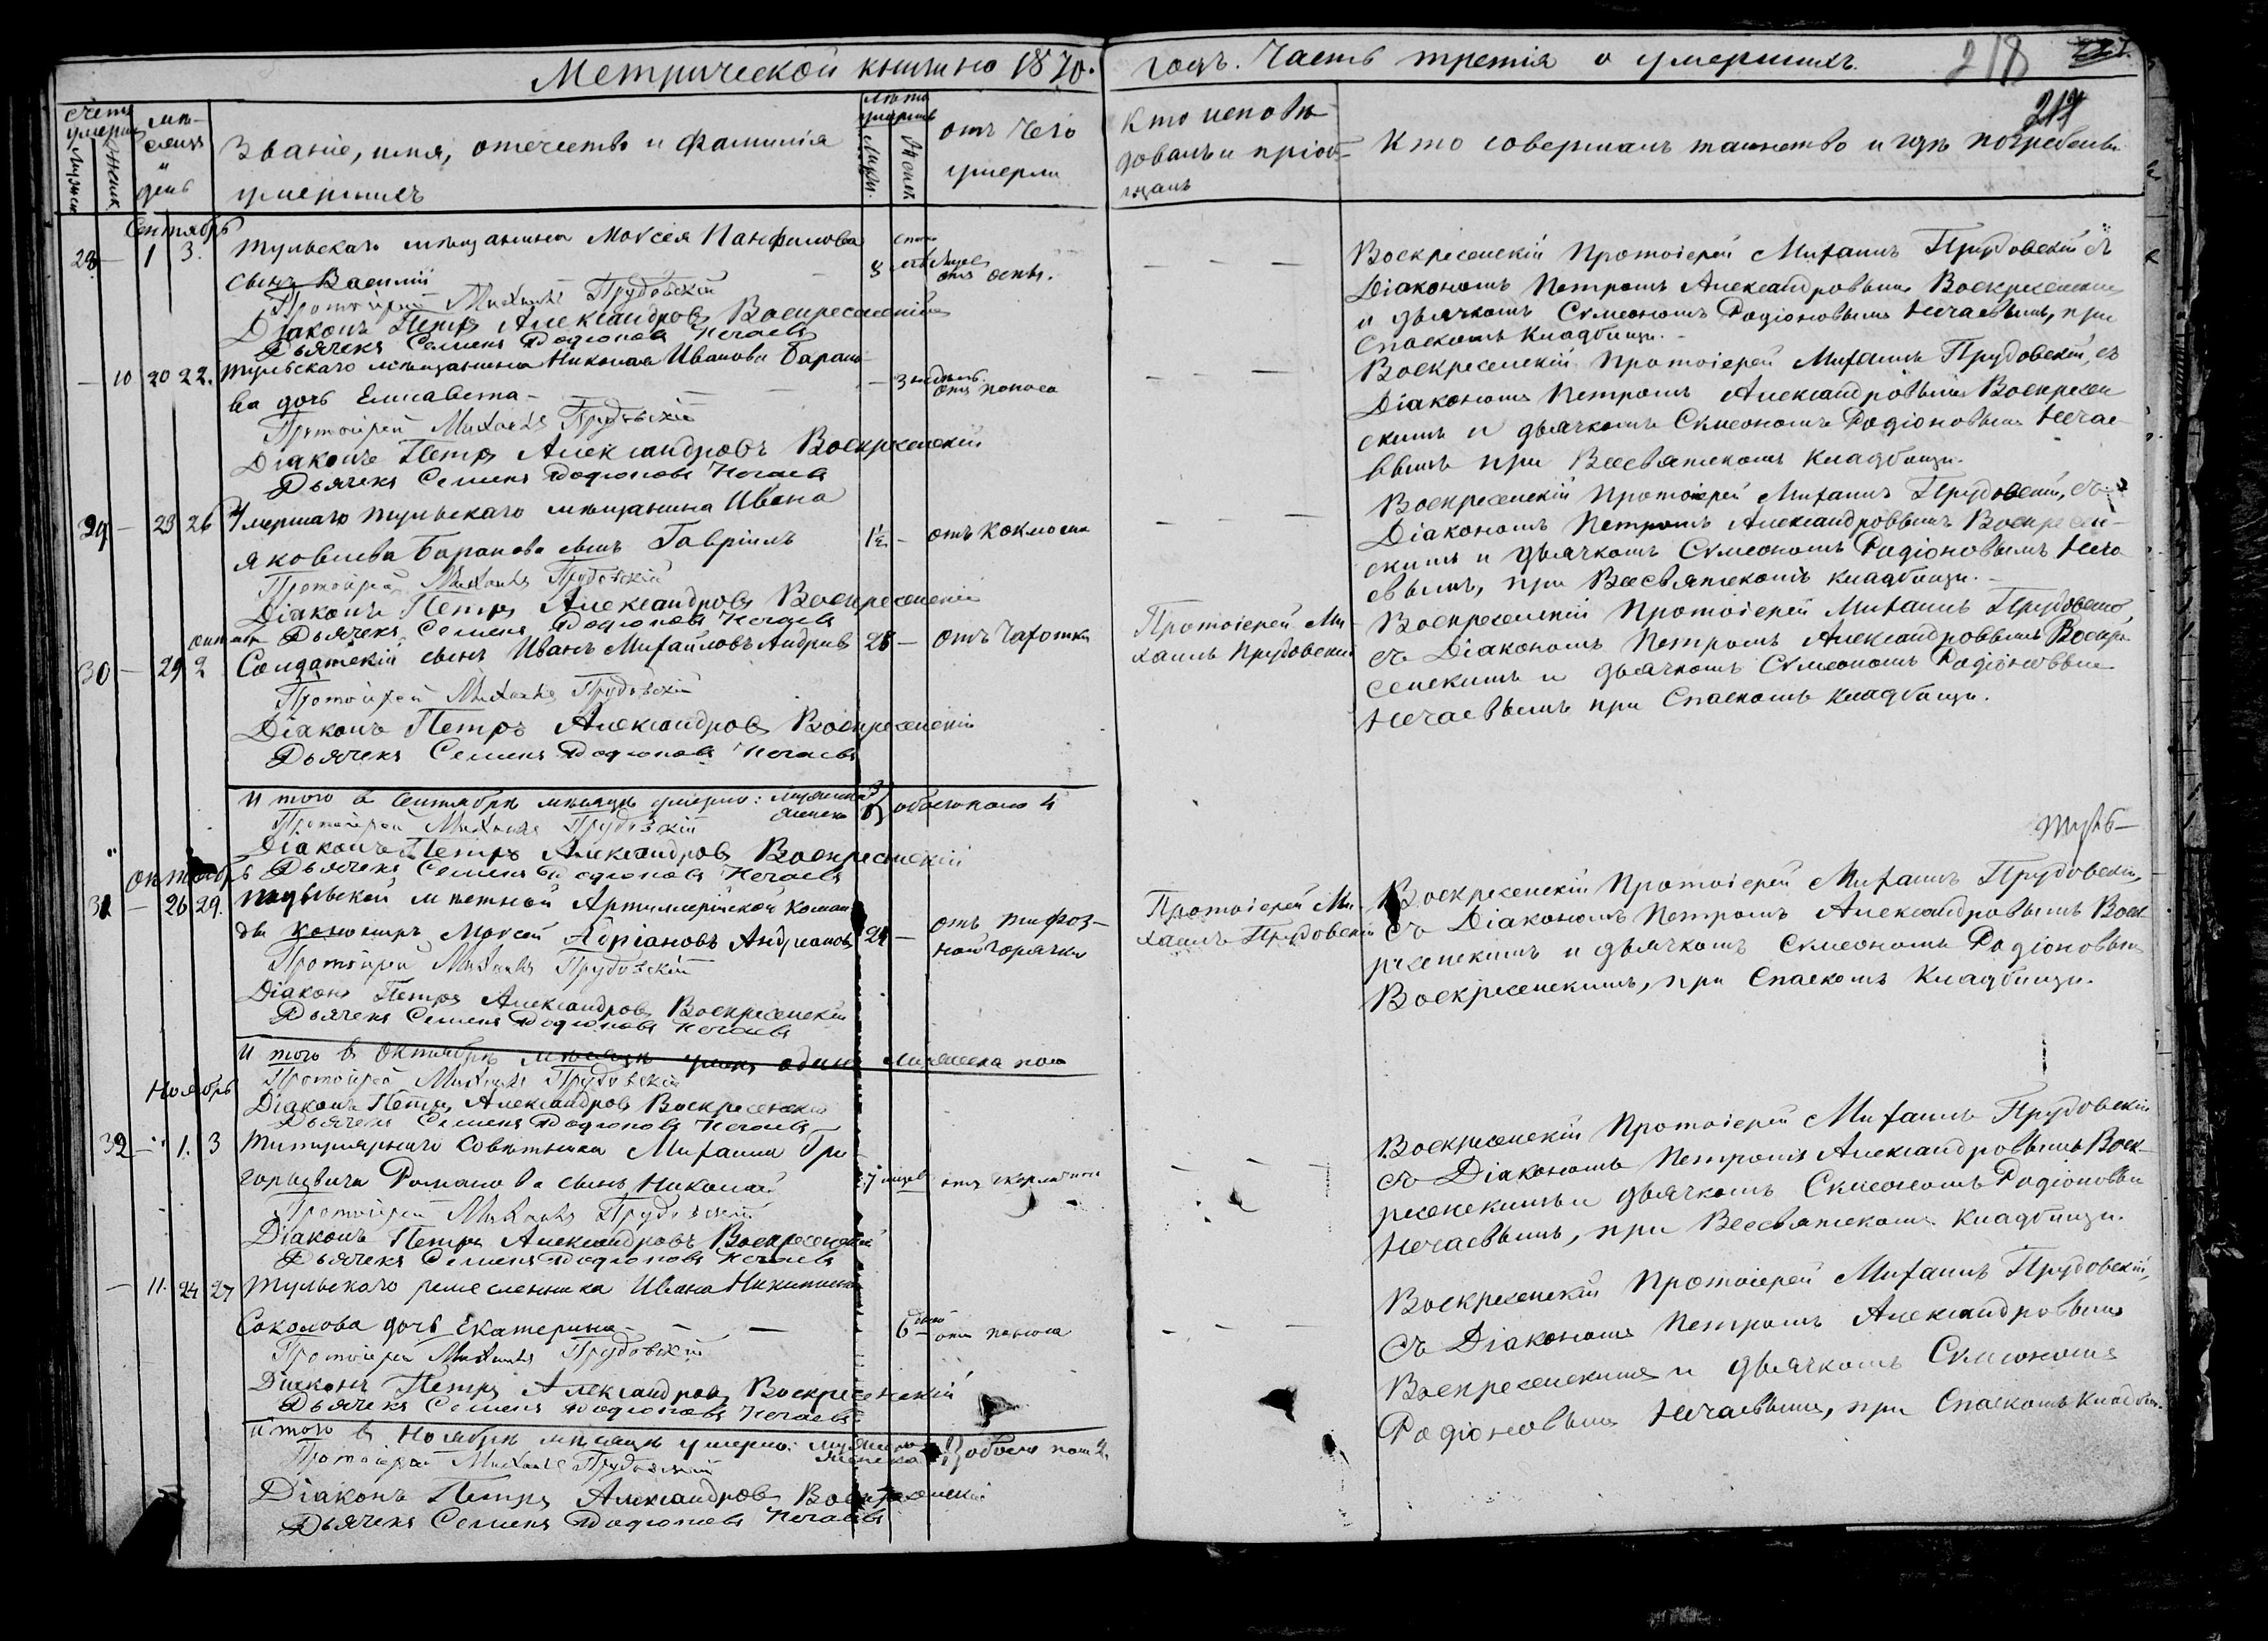 Метрической книги на 1870.
годъ. Часть третія о умершихъ.
218
217
Счетъ умерш.
Мужеск.
Женск.
Мѣсяцъ и день
Званіе, имя, отечество и фамилія
умершихъ
Лѣта умерш.
Мужс.
Женск.
отъ чего
умерли
Кто исповѣ-
довалъ и пріоб-
щалъ
Кто совершалъ таинство и гдѣ погребены
Сентябрь
28 — 1 3. Тульскаго мѣщанина Моисея Панфилова
сынъ Василій
8 отъ оспы.
Протоіерей Михаилъ Прудовскій
Діаконъ Петръ Александровъ Воскресенскій
Дьячекъ Семенъ Родіоновъ Нечаевъ
Воскресенскій Протоіерей Михаилъ Прудовскій съ
Діакономъ Петромъ Александровымъ Воскресенскимъ
и дьячкомъ Сѵмеономъ Родіоновымъ Нечаевымъ, при
Спаскомъ Кладбищѣ.
— 10 20 22. Тульскаго мѣщанина Николая Иванова Барано-
ва дочь Елисавета — 3 недѣль отъ поноса
Протоіерей Михаилъ Прудовскій
Діаконъ Петръ Александровъ Воскресенскій
Дьячекъ Семенъ Родіоновъ Нечаевъ
Воскресенскій Протоіерей Михаилъ Прудовскій, съ
Діакономъ Петромъ Александровымъ Воскресен
скимъ и дьячкомъ Сѵмеономъ Родіоновымъ Нечае-
вымъ при Всесвятскомъ Кладбищѣ.
29 — 23 26 Умершаго тульскаго мѣщанина Ивана
Яковлева Баранова сынъ Гавріилъ 1½ — отъ коклюша
Протоіерей Михаилъ Прудовскій
Діаконъ Петръ Александровъ Воскресенскій
Дьячекъ Семенъ Родіоновъ Нечаевъ
Воскресенскій Протоіерей Михаилъ Прудовскій, съ
Діакономъ Петромъ Александровымъ Воскресен-
скимъ и дьячкомъ Сѵмеономъ Родіоновымъ Неча
евымъ, при Всесвятскомъ кладбищѣ.
октябр
30 — 29 2 Солдатскій сынъ Иванъ Михайловъ Андреевъ 28 — отъ чахотки
Протоіерей Михаилъ Прудовскій
Діаконъ Петръ Александровъ Воскресенскій
Дьячекъ Семенъ Родіоновъ Нечаевъ
Протоіерей Ми-
хаилъ Прудовскій
Воскресенскій Протоіерей Михаилъ Прудовскій,
съ Діакономъ Петромъ Александровымъ Воскре-
сенскимъ и дьячкомъ Сѵмеономъ Родіоновымъ
Нечаевымъ при Спаскомъ кладбищѣ.
И того въ Сентябрѣ мѣсяцѣ умерло: мужеска 3
женска 1 обоего пола 4
Протоіерей Михаилъ Прудовскій
Діаконъ Петръ Александровъ Воскресенскій
Дьячекъ Семенъ Родіоновъ Нечаевъ
Октябрь
31 — 26 29. Тульской мѣстной Артиллерійской Коман
ды канониръ Моисей Адріановъ Андріановъ 24 — отъ тифоз-
ной горячки
Протоіерей Михаилъ Прудовскій
Діаконъ Петръ Александровъ Воскресенскій
Дьячекъ Семенъ Родіоновъ Нечаевъ
Протоіерей Ми-
хаилъ Прудовскій
Воскресенскій Протоіерей Михаилъ Прудовскій,
съ Діакономъ Петромъ Александровымъ Воск-
ресенскимъ и дьячкомъ Сѵмеономъ Родіоновымъ
Воскресенскимъ, при Спаскомъ Кладбищѣ.
И того въ Октябрѣ мѣсяцѣ умеръ одинъ мужеска пола
Протоіерей Михаилъ Прудовскій
Діаконъ Петръ Александровъ Воскресенскій
Дьячекъ Семенъ Родіоновъ Нечаевъ
Ноябрь
32 — 1. 3 Титулярнаго Совѣтника Михаила Гри
горьевича Романова сынъ Николай 7 мѣсяц отъ скарлатины
Протоіерей Михаилъ Прудовскій
Діаконъ Петръ Александровъ Воскресенскій
Дьячекъ Семенъ Родіоновъ Нечаевъ
Воскресенскій Протоіерей Михаилъ Прудовскій
съ Діакономъ Петромъ Александровымъ Воск-
ресенскимъ и дьячкомъ Сѵмеономъ Родіоновым
Нечаевымъ, при Всесвятскомъ Кладбищѣ.
— 11. 24 27 Тульскаго ремесленника Ивана Никитина
Соколова дочь Екатерина — 6 дней отъ поноса
Протоіерей Михаилъ Прудовскій
Діаконъ Петръ Александровъ Воскресенскій
Дьячекъ Семенъ Родіоновъ Нечаевъ
Воскресенскій Протоіерей Михаилъ Прудовскій,
съ Діакономъ Петромъ Александровымъ
Воскресенскимъ и дьячкомъ Сѵмеономъ
Родіоновымъ Нечаевымъ, при Спаскомъ Кладбищ.
И того въ Ноябрѣ мѣсяцѣ умерло: мужеска
женска обоего пола 2.
Протоіерей Михаилъ Прудовскій
Діаконъ Петръ Александровъ Воскресенскій
Дьячекъ Семенъ Родіоновъ Нечаевъ